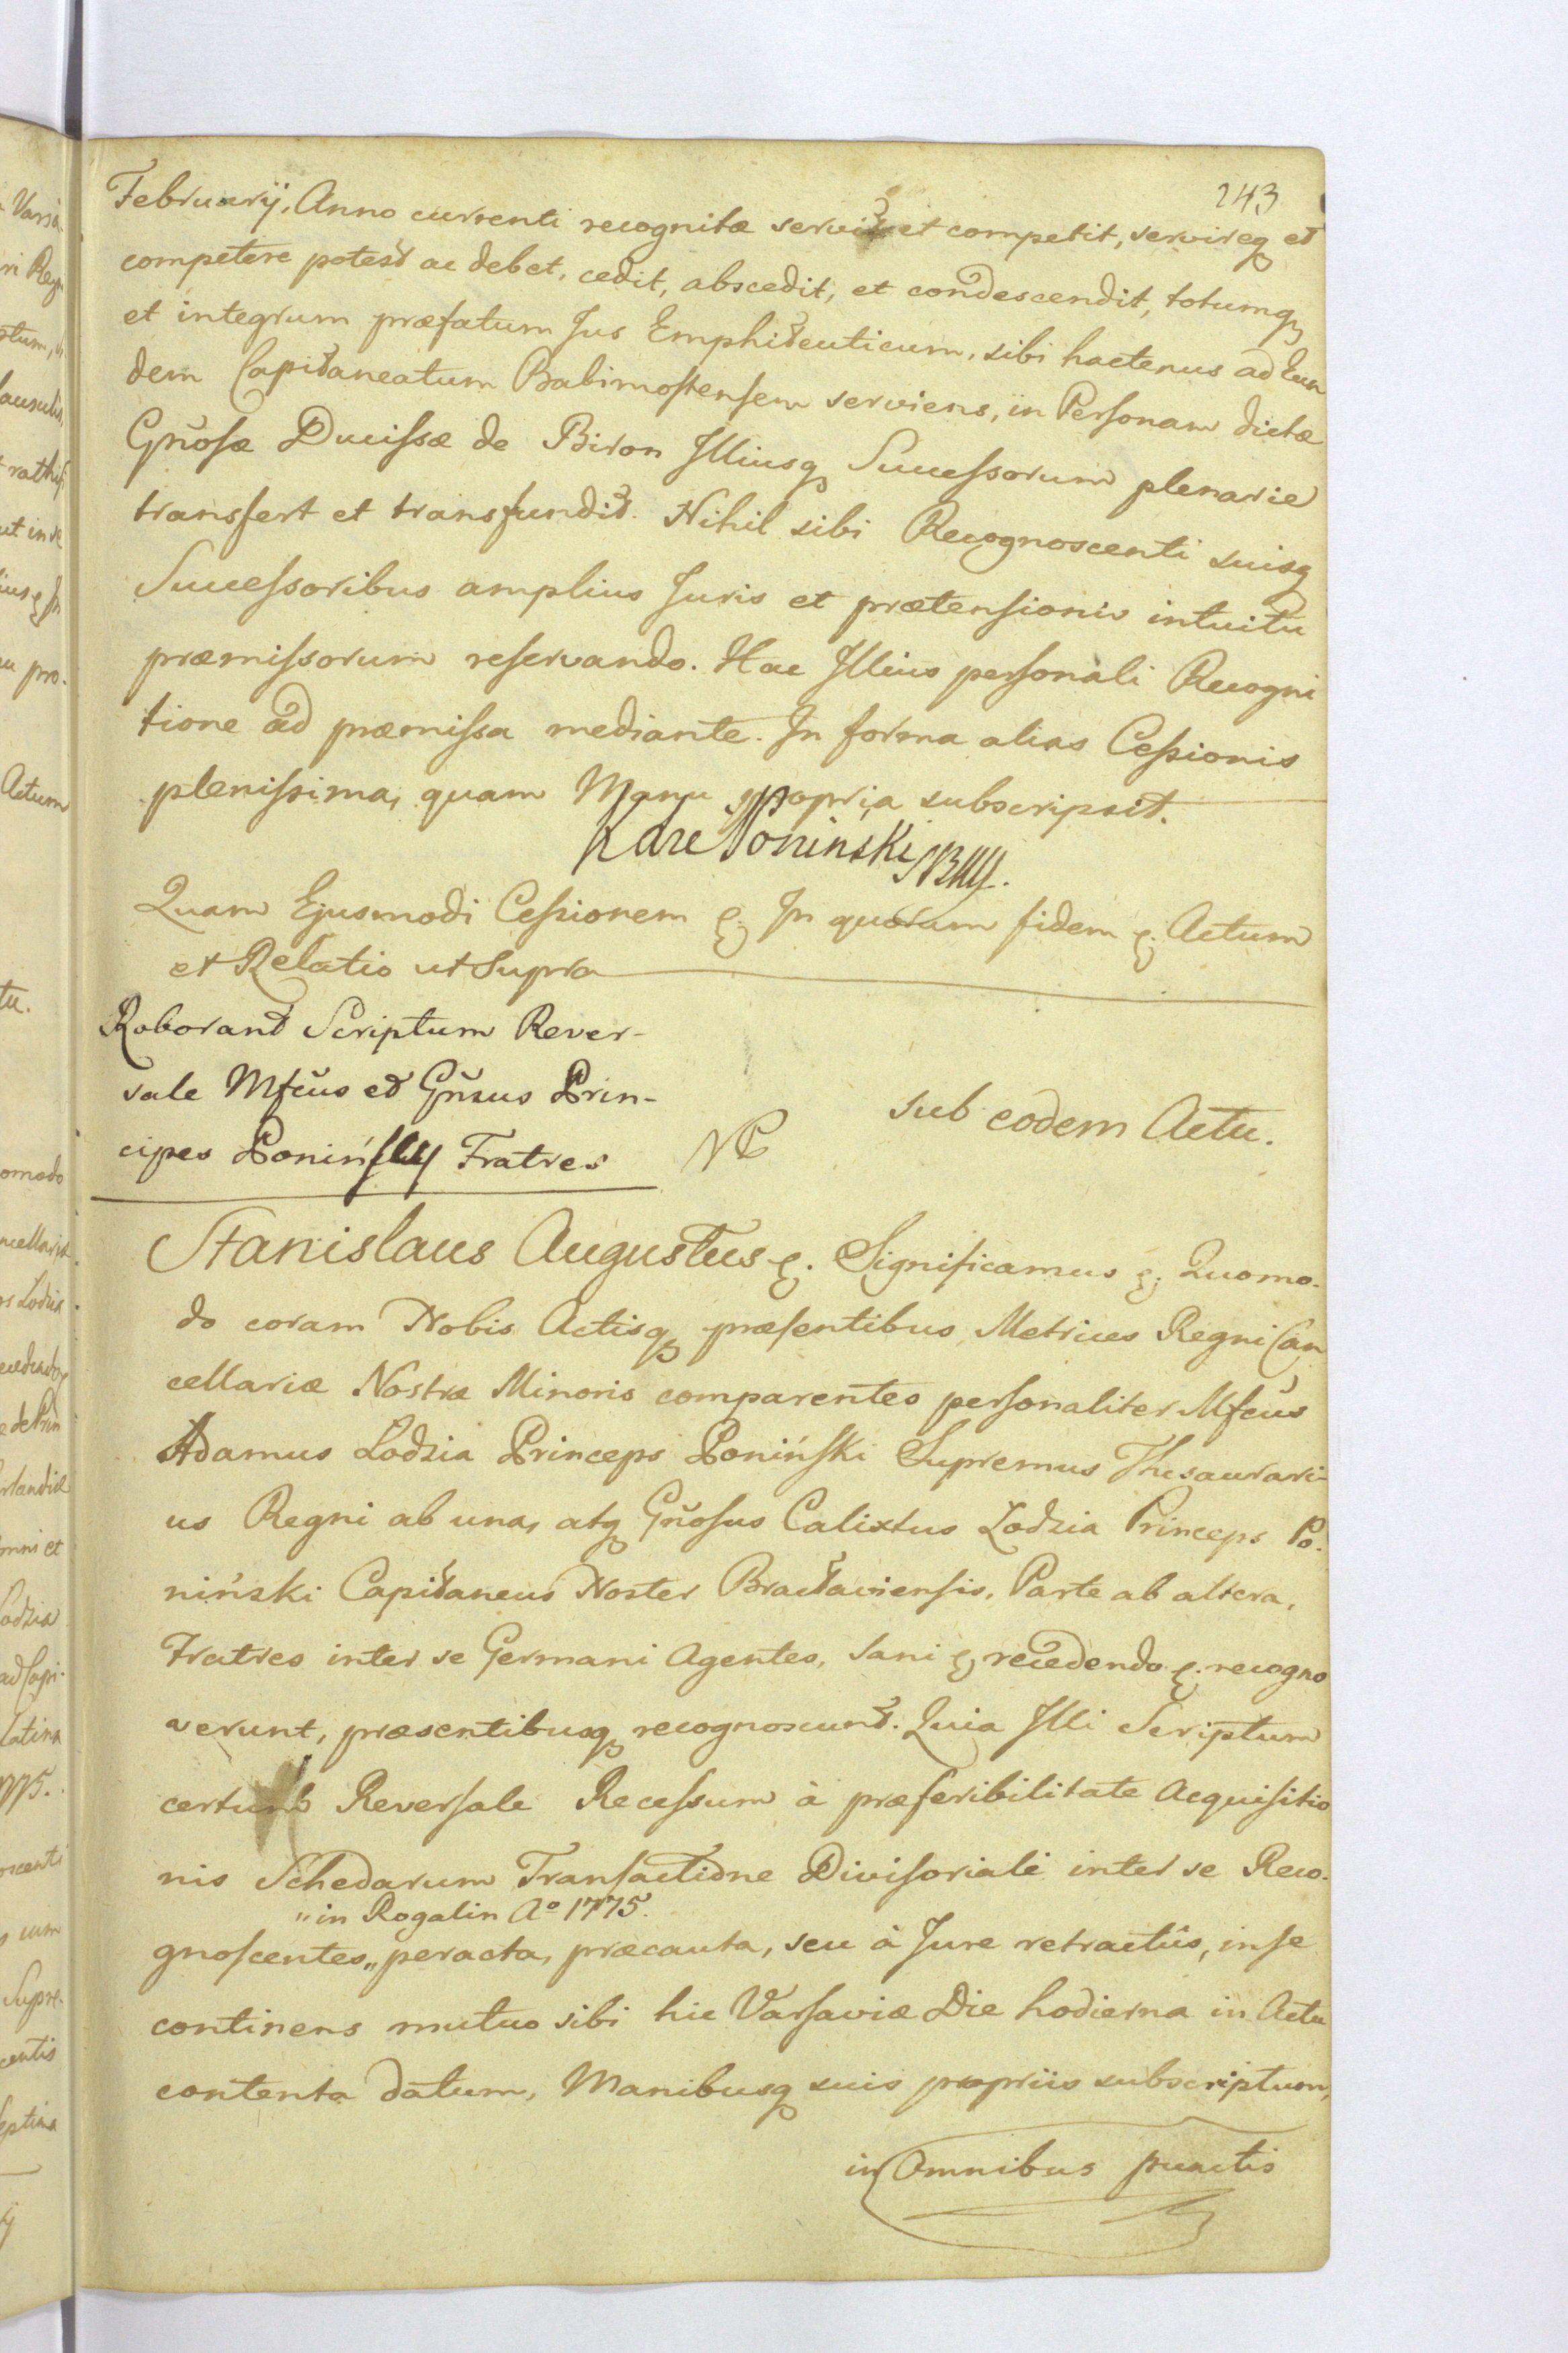 243
Februarij, Anno currenti recognitæ servit et competit, servireq et
competere potest ac debet, cedit, abscedit, et condescendit, totumq
et integrum præfatum Jus Emphiteuticum, sibi hactenus ad Eun
dem Capitaneatum Babimostensem serviens, in Personam dictæ
Gñosæ Ducissæ de Biron Illiusq Successorum plenarie
transfert et transfundit. Nihil sibi Recognoscenti suisq
Successoribus amplius Juris et prætensionis intuitu
præmissorum reservando. Hac Illius personali Recogni
tione ad præmissa mediante. In forma alias Cessionis
plenissima, quam Manu propria subscripsit.
Poninski
Quam Ejusmodi Cessionem &. In quorum fidem &. Actum
et Relatio ut Supra
Roborant Scriptum Rever-
sale Mfcus et Gnsus Prin-
cipes Poninscy Fratres
sub eodem Actu.
Stanislaus Augustus &. Significamus &. Quomo-
do coram Nobis Actisq præsentibus Metrices Regni Can
cellariæ Nostræ Minoris comparentes personaliter Mfcus
Adamus Lodzia Princeps Poniński Supremus Thesaurari-
us Regni ab una, atq Gñosus Calixtus Lodzia Princeps Po-
niński Capitaneus Noster Bractaviensis, Parte ab altera,
Fratres inter se Germani Agentes, Sani & recedendo &. recogno
verunt, præsentibusq recognoscunt. Quia Illi Scriptum
certum Reversale Recessum à præferibilitate Acquisitio
nis Schedarum Transactione Divisoriali inter se Reco-
„in Rogalin Aº 1775.
gnoscentes „ peracta, præcauta, seu à Jure retractûs, in se
continens mutuo sibi hic Varsaviæ Die hodierna in Actu
contenta datum, Manibusq suis propriis subscriptum,
in Omnibus punctis